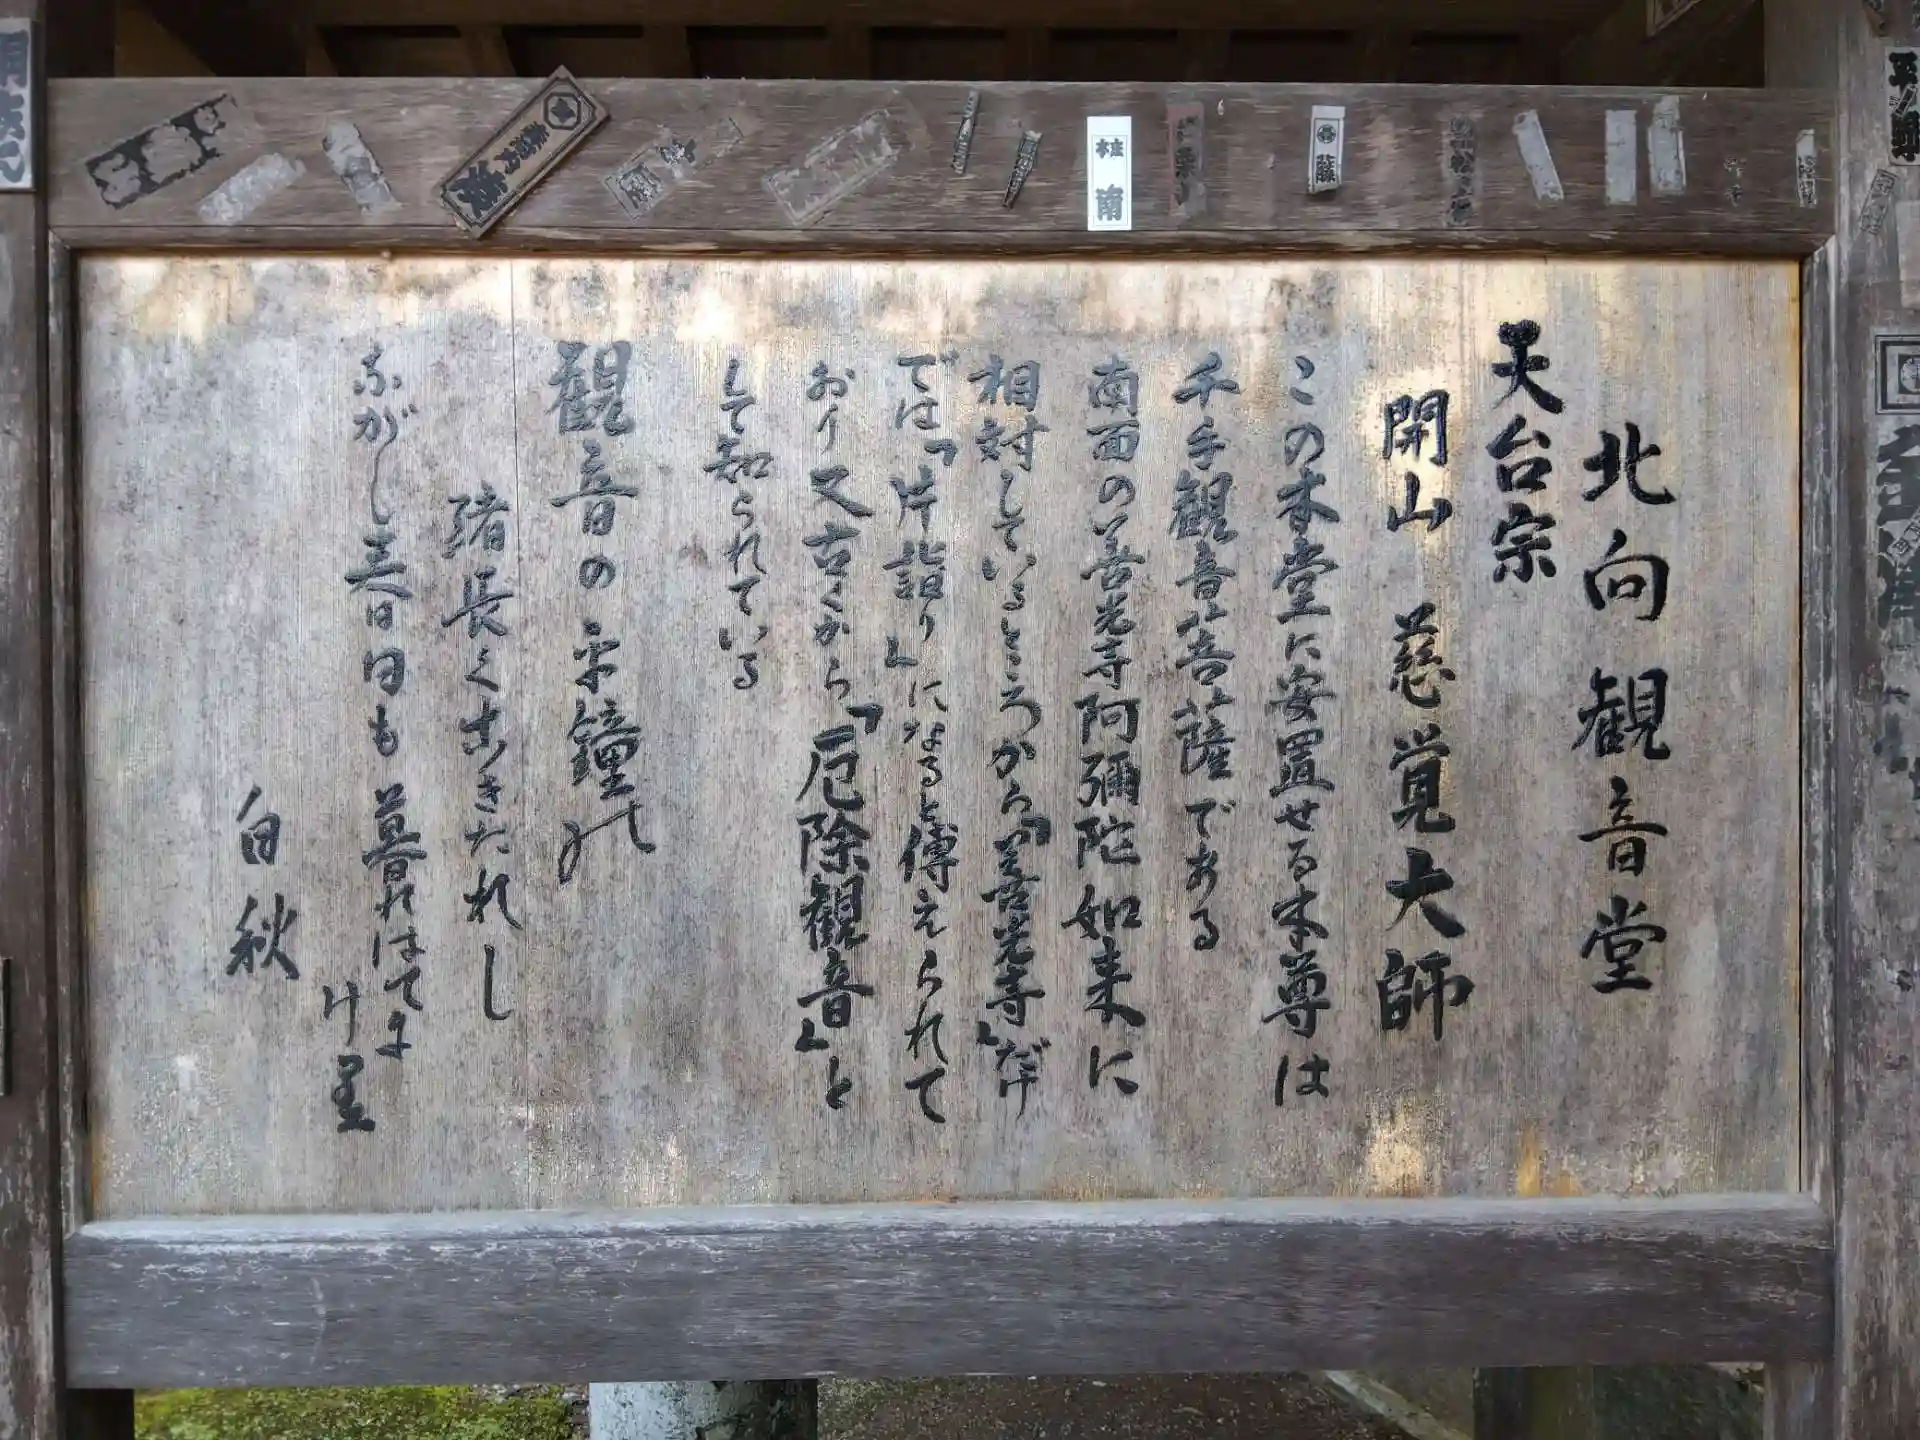 北向観音堂
天台宗
開山 慈覚大師
この香堂に安置せる本尊は
千手観音菩薩である
南面の善光寺阿彌陀如来に
相対しているところから「善光寺」だけ
では「片詣り」になると傳えられて
おり又古くから「厄除観音」と
して知られている
観音の 鐘の
緒長く きたれし
ながし春日も暮れはてに
け里
白秋
南